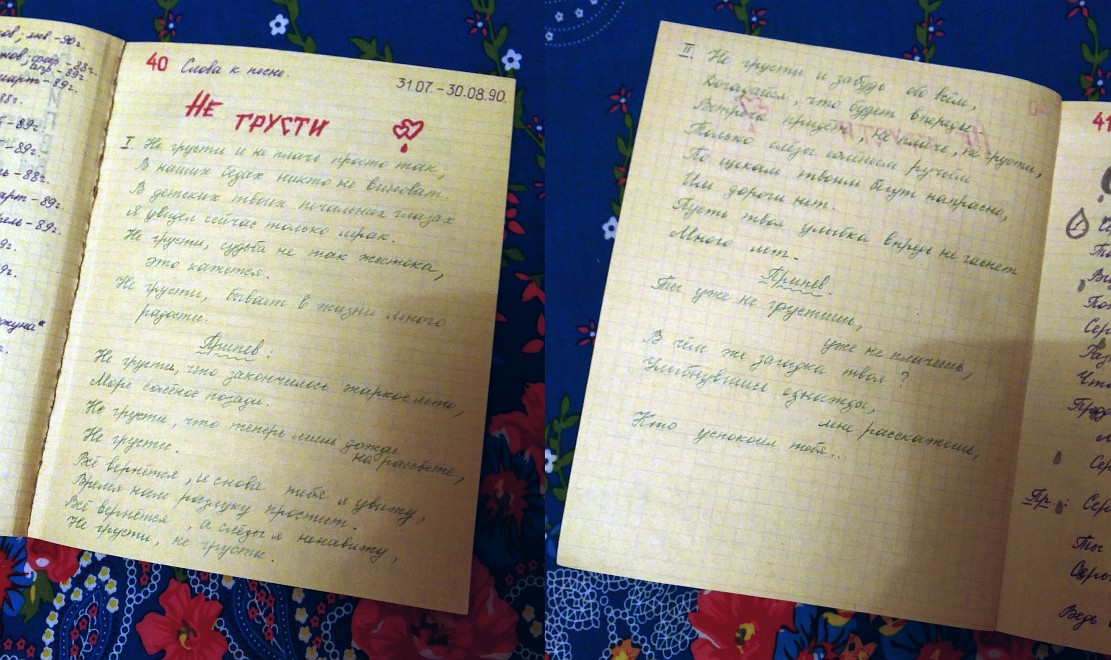 ов, янв.-90г.
-88г.
апр.-89г.
март-89г.
88г.
-89г.
-89г.
ь-88г.
арт-89г.
рель-89г.
9г.
9г.
г.
40 Слова к песне.
31.07.-30.08.90.
НЕ ГРУСТИ
I. Не грусти и не плачь просто так,
В наших бедах никто не виноват.
В детских твоих печальных глазах
Я увидел сейчас только мрак.
Не грусти, судьба не так жестока,
это кажется.
Не грусти, бывает в жизни много
радости.
Припев:
Не грусти, что закончилось жаркое лето,
Море солёное позади.
Не грусти, что теперь лишь дожди
на рассвете,
Не грусти.
Всё вернётся, и снова тебя я увижу,
Время нам разлуку простит.
Всё вернётся, а слёзы я ненавижу,
Не грусти, не грусти.
II. Не грусти и забудь обо всём,
Догадайся, что будет впереди
Встреча придёт, не плачь, не грусти,
Только слёзы солёным ручьём
По щекам твоим бегут напрасно,
Им дороги нет.
Пусть твоя улыбка впредь не гаснет
Много лет.
Припев.
Ты уже не грустишь,
уже не плачешь,
В чём же загадка твоя?
Улыбнувшись однажды,
мне расскажешь,
Кто успокоил тебя...
41
I
Се
Ты
Вез
Пог
Сер
Раз
Что
Сер
Пр.: Серд
Ты
Серд
Ведь